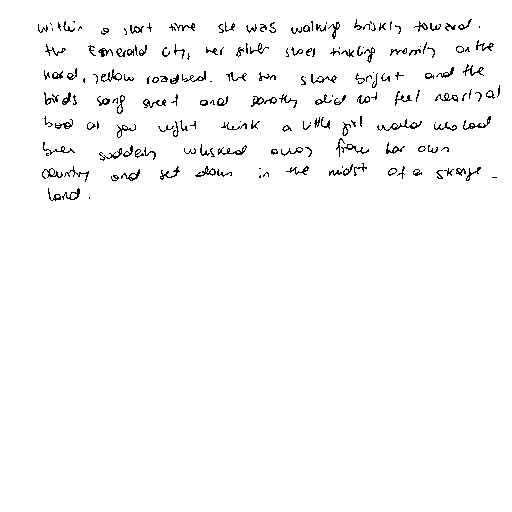 Within a short time she was walking briskly toward.
the Emerald City, her silver shoes tinkling merrily on the
hard, yellow roadbed. The sun shone bright and the
birds sang sweet and Dorothy did not feel nearly as
bad as you might think a little girl would who had
been suddenly whisked away from her own
country and set down in the midst of a strange
land.